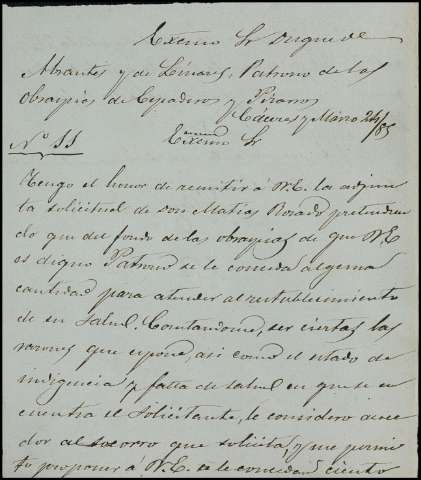 Excmo Sr Duque de
Abrantes y de Linares, Patrono de las
Obraspias de Espaderos y Pizarros
Cáceres y Marzo 24/85
Excmo Sr
No 11
Tengo el honor de remitir á V.E. la adjun
ta solicitud de Don Matias Rosado pretendien
do que del fondo de las obraspias de que V.E
es digno Patrono se le conceda alguna
cantidad para atender al restablecimiento
de su salud. Constandome, ser ciertas las
razones que espone, asi como el estado de
indigencia y falta de salud en que se en
cuentra el solicitante, le considero acree
dor al socorro que solicita, y me permi
to proponer á V.E. se le concedan ciento